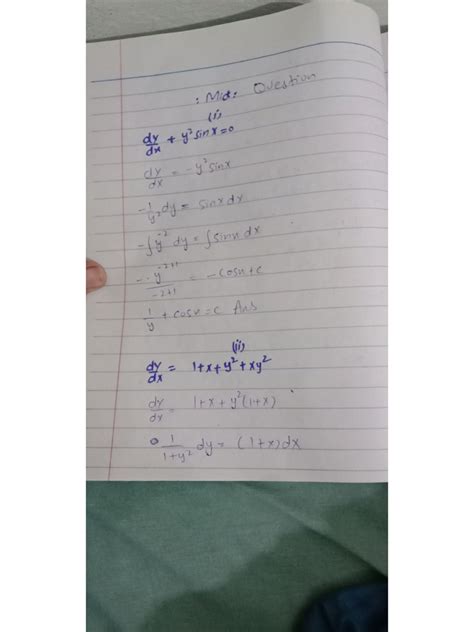 : Mid: Question
(i)
dy/dx + y² sinx = 0
dy/dx = -y² sinx
-1/y² dy = sinx dx
-∫y⁻² dy = ∫sinx dx
-y⁻²⁺¹/-2+1 = -cosx+c
1/y + cosx = c Ans
(ii)
dy/dx = 1+x+y²+xy²
dy/dx = 1+x+y²(1+x)
1/1+y² dy = (1+x)dx